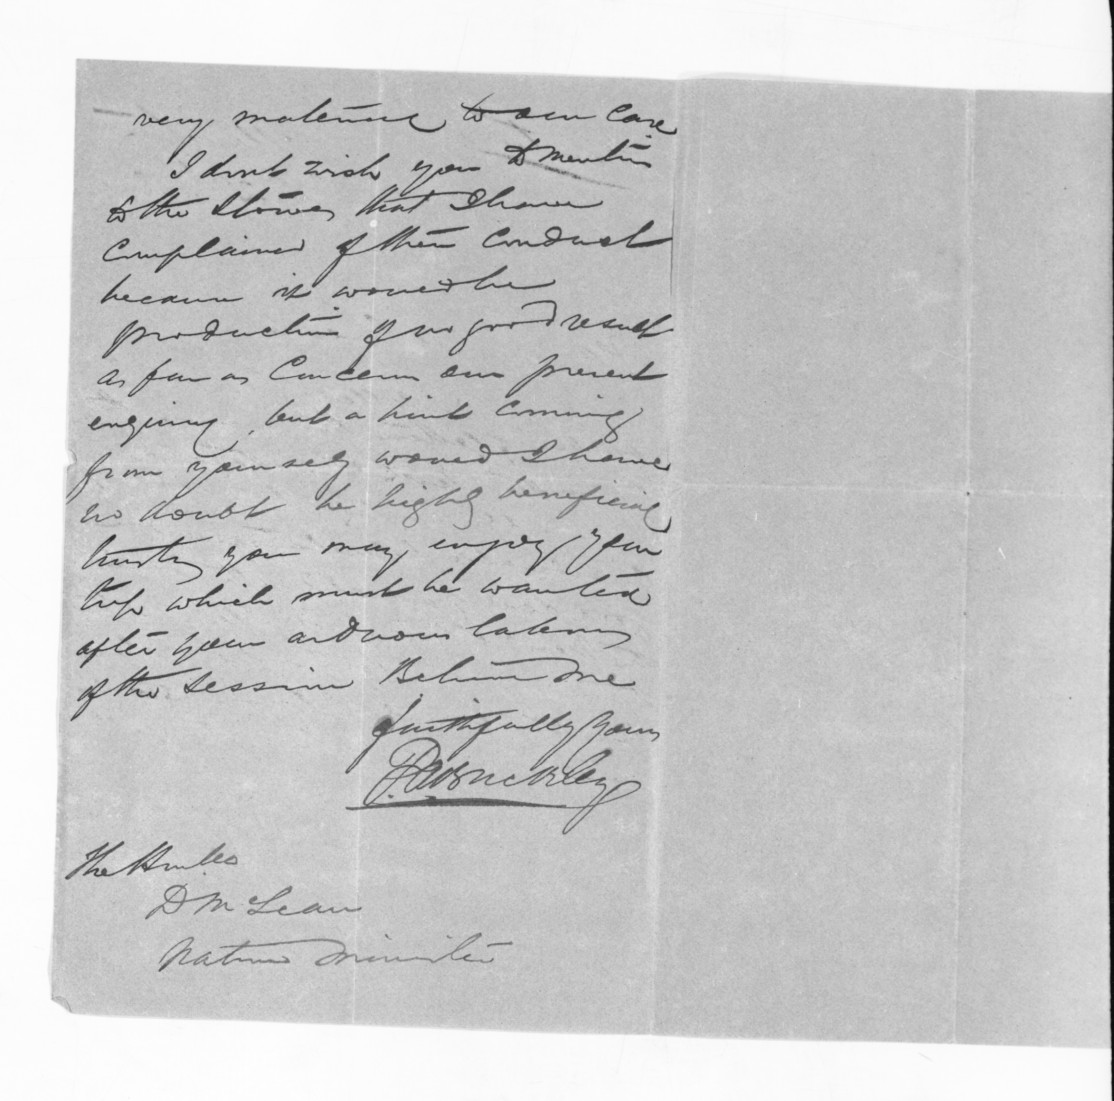 very material to our Case
I dont wish you to mention
to the that I have
complained of their conduct
because it would be
productive of no good result
as far as Concerns our present
enquiry, but a hint coming
from yourself would I have
no doubt be highly beneficial
trusting you may enjoy your
trip which must be wanted
after your arduous labours
of the session Believe me
faithfully Yours
Buckley
The Honble
D McLean
Native Minister